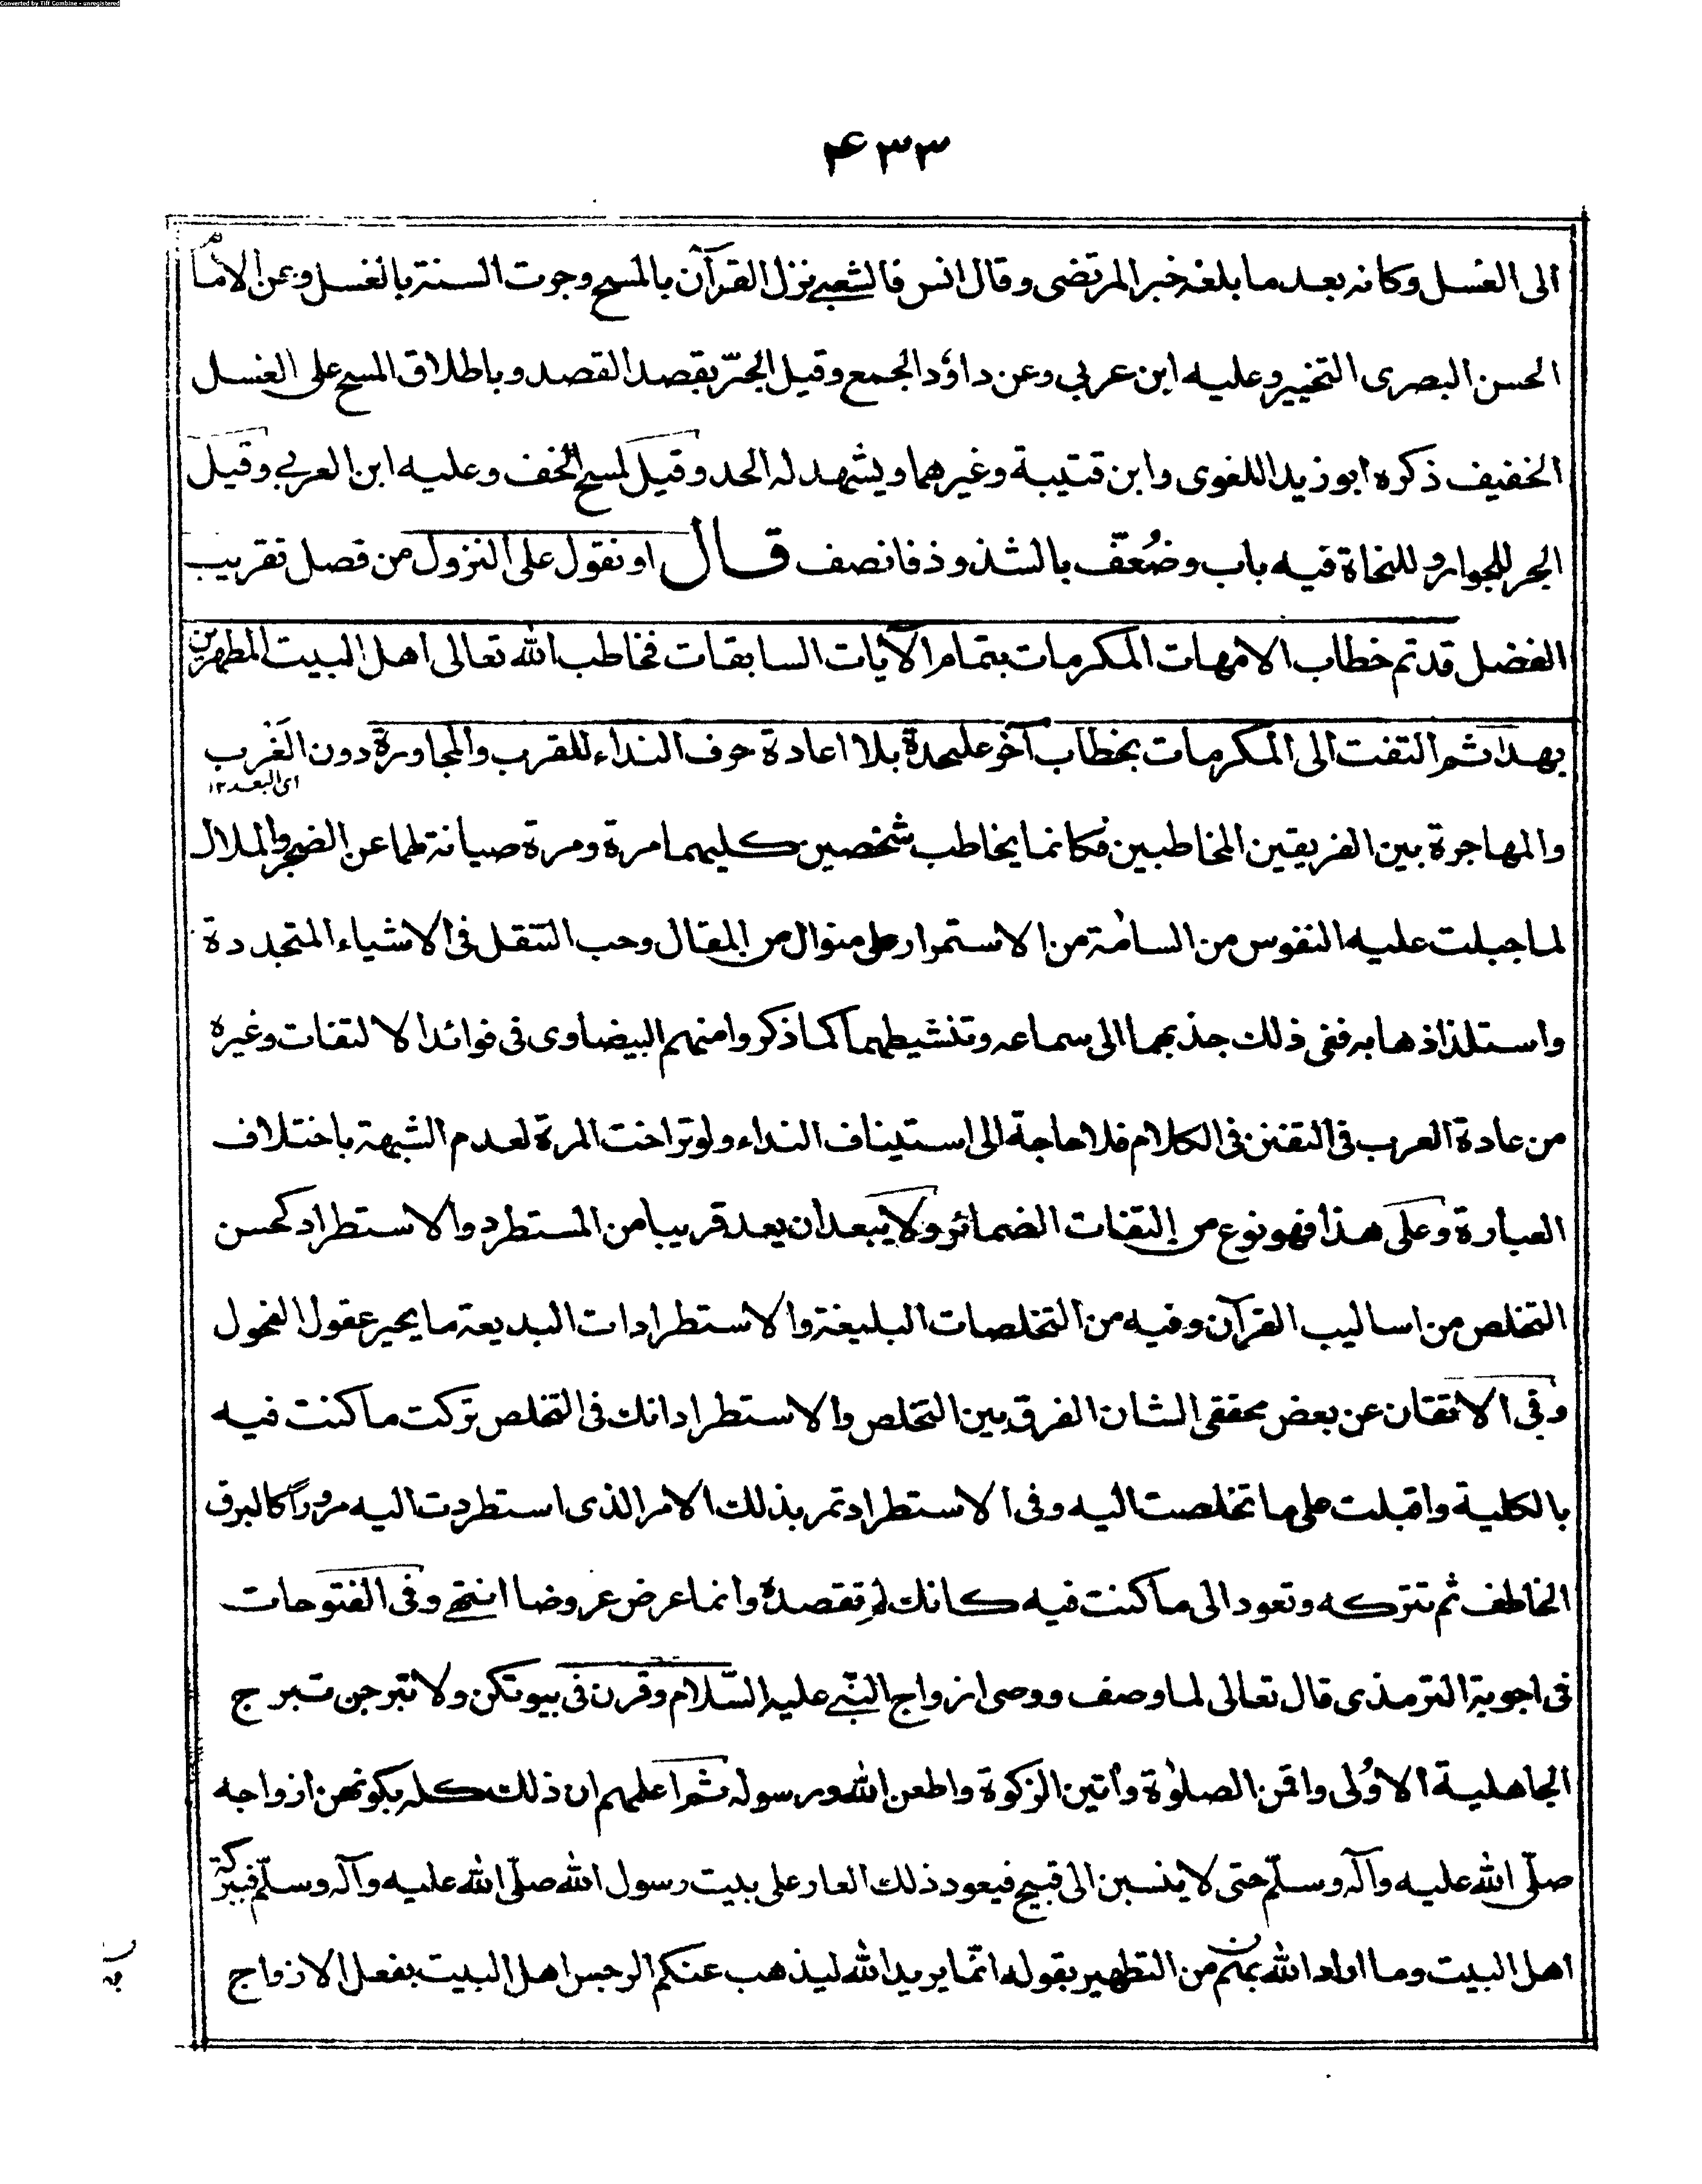 Converted by Tiff Combine - unregistered
۴۳۳
الى الغسل وكانه بعد ما بلغه خبر المرتضى وقال انس فالشعبي نزل القرآن بالمسح وجرت السنة بالغسل وعن الامام
الحسن البصرى التخيير وعليه ابن عربي وعن داؤد الجمع وقيل الجرّ بقصد القصد وباطلاق المسح على الغسل
الخفيف ذكره ابو زيد اللغوى وابن قتيبة وغيرهما ويشهد له الحد وقيل لمسح الخف وعليه ابن العربي وقيل
الجر للجوار وللنحاة فيه باب وضُعّف بالشذوذ فانصف قال او نقول على النزول من فصل تقريب
الفضل قد تم خطاب الامهات المكرمات بتمام الآيات السابقات فخاطب الله تعالى اهل البيت المطهرين
بهذا ثم التفت الى المكرمات بخطاب آخر عليحدة بلا اعادة حرف النداء للقرب والمجاورة دون الغَرب
اى البعد ۱۲
والمهاجرة بين الفريقين المخاطبين فكانما يخاطب شخصين كليهما مرة ومرة صيانة لهما عن الضجر والملال
لما جبلت عليه النفوس من السآمة من الاستمرار على منوال من المقال وحب التنقل فى الاشياء المتجددة
واستلذاذها به ففى ذلك جذبهما الى سماعه وتنشيطهما كما ذكروا منهم البيضاوى فى فوائد الالتفات وغيره
من عادة العرب فى التفنن فى الكلام فلا حاجة الى استيناف النداء ولو تراخت المرة لعدم الشبهة باختلاف
العبارة وعلى هذا فهو نوع من التفات الضمائر ولا يبعد ان يعد قريبا من المستطرد والاستطراد كحسن
التخلص من اساليب القرآن وفيه من التخلصات البليغة والاستطرادات البديعة ما يحير عقول الفحول
وفى الاتقان عن بعض محققى الشان الفرق بين التخلص والاستطراد انك فى التخلص تركت ما كنت فيه
بالكلية واقبلت على ما تخلصت اليه وفى الاستطراد تمر بذلك الامر الذى استطردت اليه مروراً كالبرق
الخاطف ثم تتركه وتعود الى ما كنت فيه كانك لم تقصده وانما عرض عروضا انتهى وفى الفتوحات
فى اجوبة الترمذى قال تعالى لما وصف ووصى ازواج النبي عليه السّلام وقرن فى بيوتكن ولا تبرجن تبرج
الجاهلية الاوُلى واقمن الصلوٰة وآتين الزكوة واطعن الله ورسوله ثم اعلمهم ان ذلك كله بكونهن ازواجه
صلّى الله عليه وآله وسلّم حتى لا ينسبن الى قبيح فيعود ذلك العار على بيت رسول الله صلّى الله عليه وآله وسلّم فببركة
اهل البيت وما اراد الله بهم من التطهير بقوله انّما يريد الله ليذهب عنكم الرجس اهل البيت بفعل الازواج